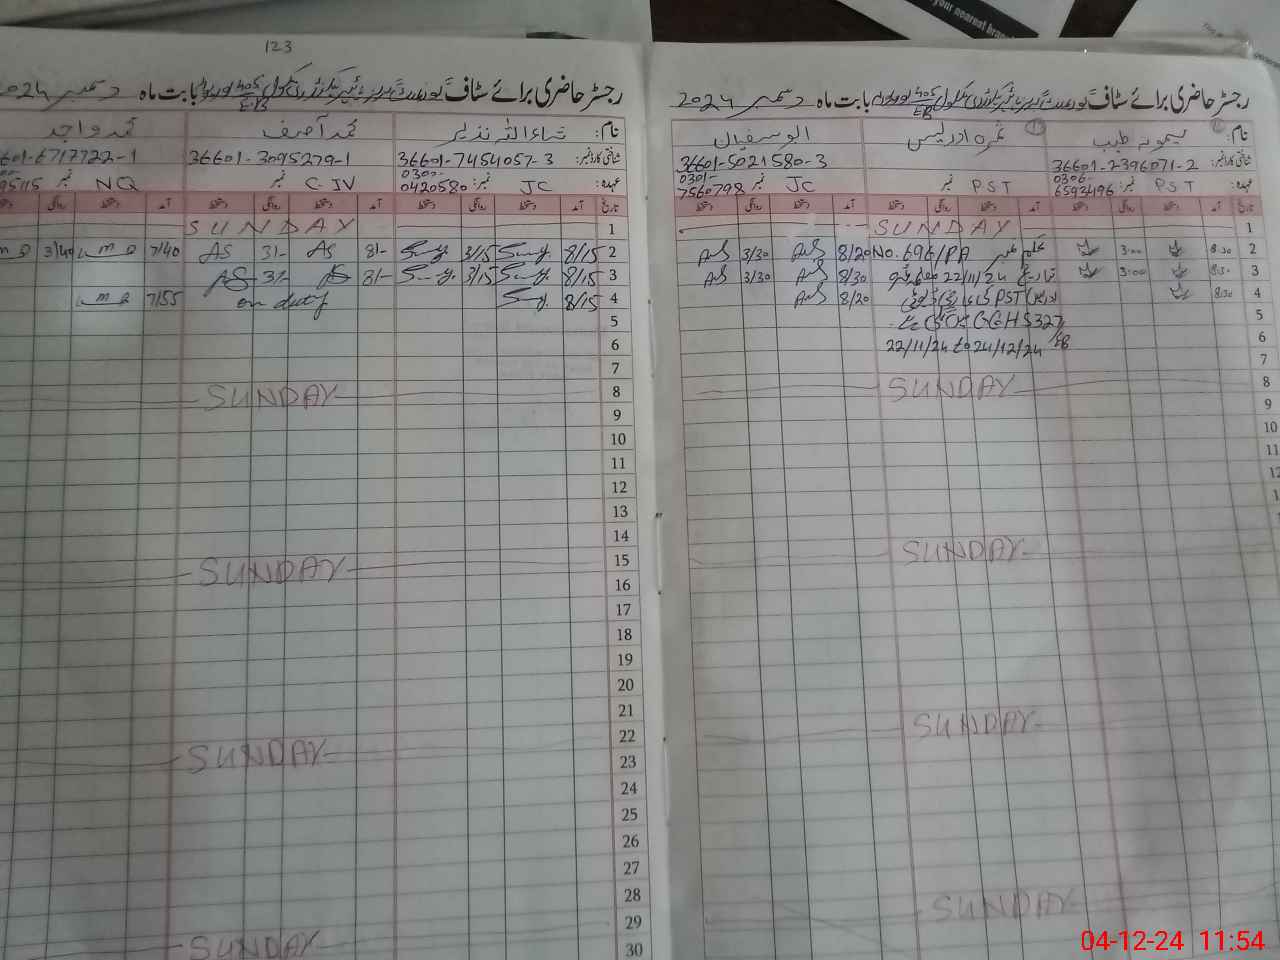 your nearest bran
رجسٹر حاضری برائے سٹاف گورنمنٹ گرلز ہائیر سیکنڈری سکول 405/EB بابت ماہ دسمبر 2024
نام: میمونہ طیب
ثمرہ ادریس
ابو سفیان
شناختی کارڈ نمبر: 36601-2396071-2
36601-5021580-3
عہدہ: PST نمبر: 0306-6593496
PST نمبر
JC نمبر 0301-7560798
تاریخ آمد دستخط روانگی دستخط آمد دستخط روانگی دستخط آمد دستخط روانگی دستخط
1 SUNDAY
2 8:30 3:00 حکم نمبر No. 696/PA 8/20 AuS 3/30 AuS
3 8:30 3:00 تاریخ 22/11/24 8/30 AuS 3/30 AuS
4 8:30 PST 8/20 AuS
5 GGHS 327/EB
6 22/11/24 to 24/12/24
7
8 SUNDAY
9
10
11
12
SUNDAY
SUNDAY
SUNDAY
123
رجسٹر حاضری برائے سٹاف گورنمنٹ گرلز ہائیر سیکنڈری سکول 405/EB بابت ماہ دسمبر 2024
نام: ثناء اللہ نذیر
محمد آصف
محمد واجد
شناختی کارڈ نمبر: 36601-7454057-3
36601-3095279-1
6601-6717722-1
عہدہ: JC نمبر: 0300-0420580
C.JV نمبر
NQ نمبر 95115
تاریخ آمد دستخط روانگی دستخط آمد دستخط روانگی دستخط آمد دستخط روانگی دستخط
1 SUNDAY
2 8/15 3/15 8/- AS 3/- AS 7/40 3/40
3 8/15 3/15 8/- AS 3/- AS
4 8/15 on duty 7/55
5
6
7
8 SUNDAY
9
10
11
12
13
14
15 SUNDAY
16
17
18
19
20
21
22 SUNDAY
23
24
25
26
27
28
29 SUNDAY
30
04-12-24 11:54